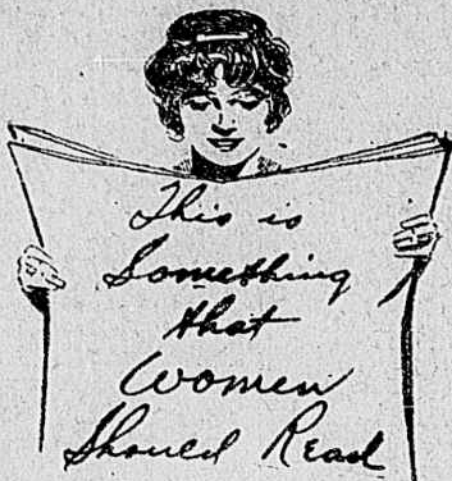 This is
Something
that
Women
Should Read